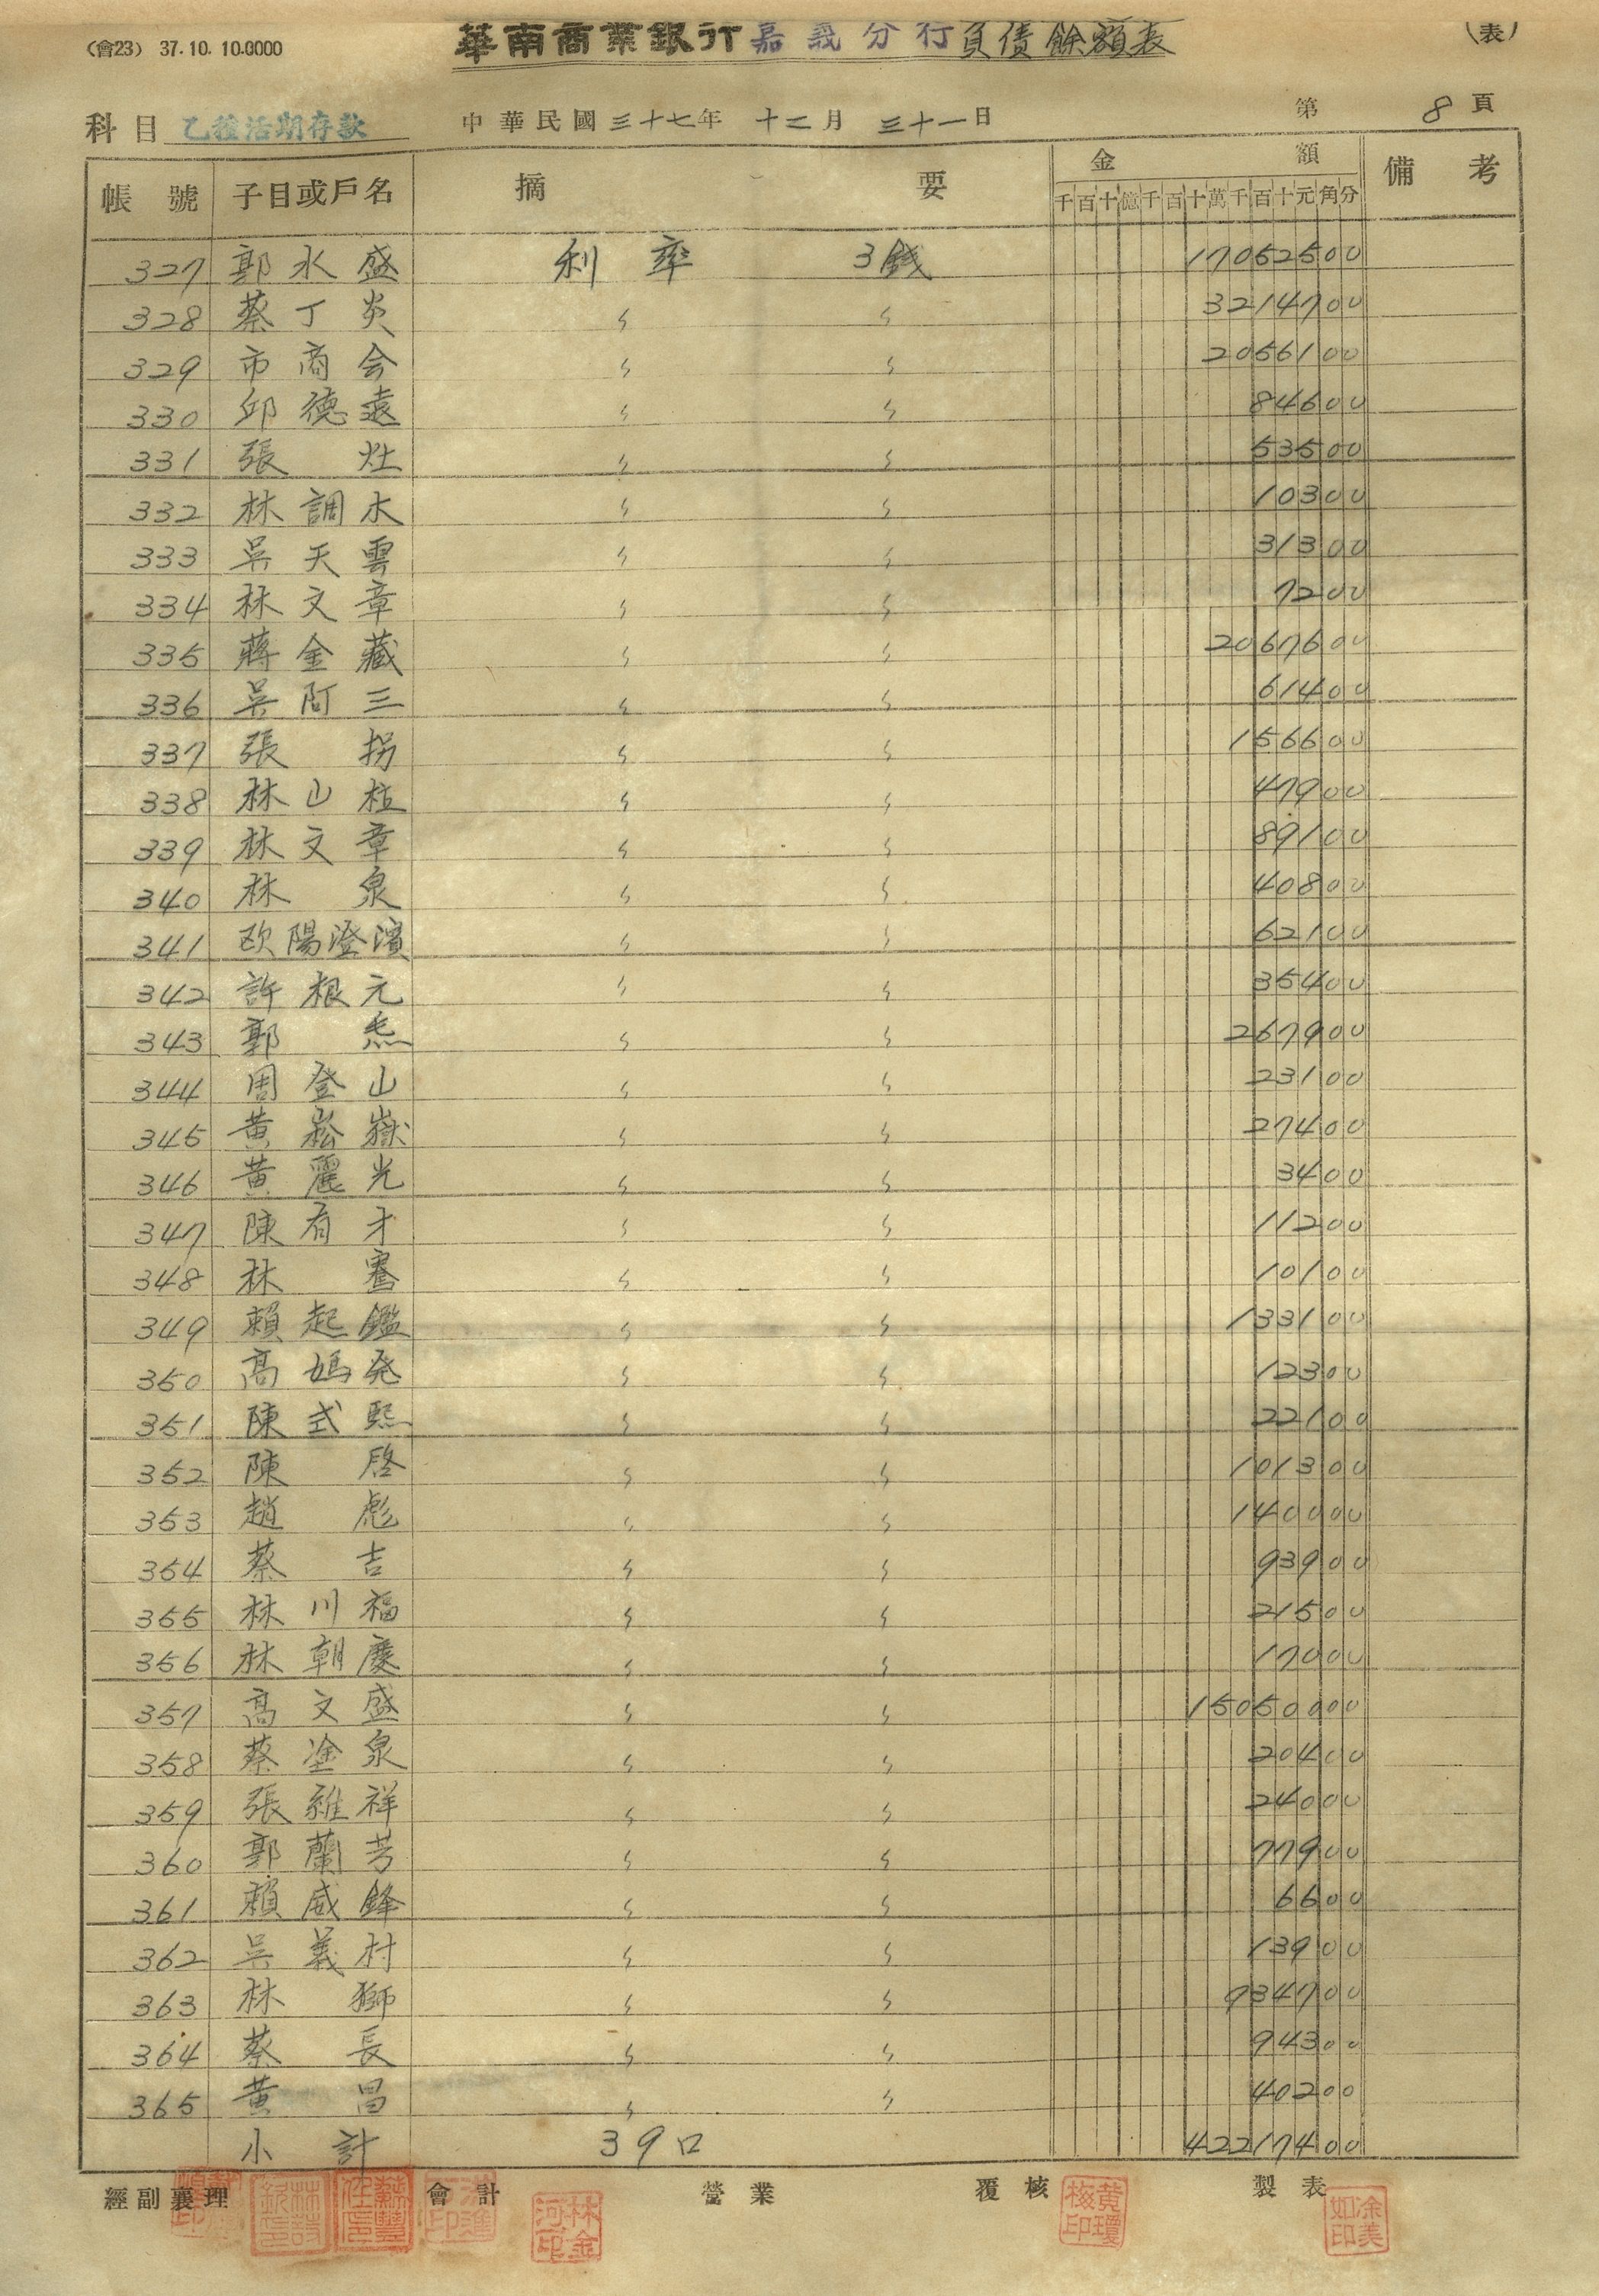 (會23) 37.10.10.0000
華南商業銀行嘉義分行負債餘額表
(表)
科目 乙種活期存款 中華民國三十七年十二月三十一日 第8頁
帳號 子目或戶名 摘要 金額 備考
千百十億千百十萬千百十元角分
327 郭水盛 利率 3錢 17052500
328 蔡丁炎 〃 〃 3214700
329 市商会 〃 〃 2056100
330 邱德遠 〃 〃 84600
331 張灶 〃 〃 53500
332 林調木 〃 〃 10300
333 吳天雲 〃 〃 31300
334 林文章 〃 〃 7200
335 蔣金藏 〃 〃 2067600
336 吳阿三 〃 〃 61400
337 張拐 〃 〃 156600
338 林山柱 〃 〃 47900
339 林文章 〃 〃 89100
340 林泉 〃 〃 40800
341 欧陽澄濱 〃 〃 62100
342 許根元 〃 〃 35400
343 郭炁 〃 〃 267900
344 周登山 〃 〃 23100
345 黃崧嶽 〃 〃 27400
346 黃麗光 〃 〃 3400
347 陳有才 〃 〃 11200
348 林騫 〃 〃 10100
349 賴起鑑 〃 〃 133100
350 高媽発 〃 〃 12300
351 陳武熙 〃 〃 22100
352 陳啓 〃 〃 101300
353 趙彪 〃 〃 140000
354 蔡吉 〃 〃 93900
355 林川福 〃 〃 21500
356 林朝慶 〃 〃 17000
357 高文盛 〃 〃 15050000
358 蔡塗泉 〃 〃 20400
359 張維祥 〃 〃 24000
360 郭蘭芳 〃 〃 77900
361 賴威鋒 〃 〃 6600
362 吳義村 〃 〃 13900
363 林獅 〃 〃 934700
364 蔡長 〃 〃 94300
365 黃昌 〃 〃 40200
小計 39口 42217400
經副襄理 會計 營業 覆核 製表
林金河印
黃瓊梅印
涂美如印